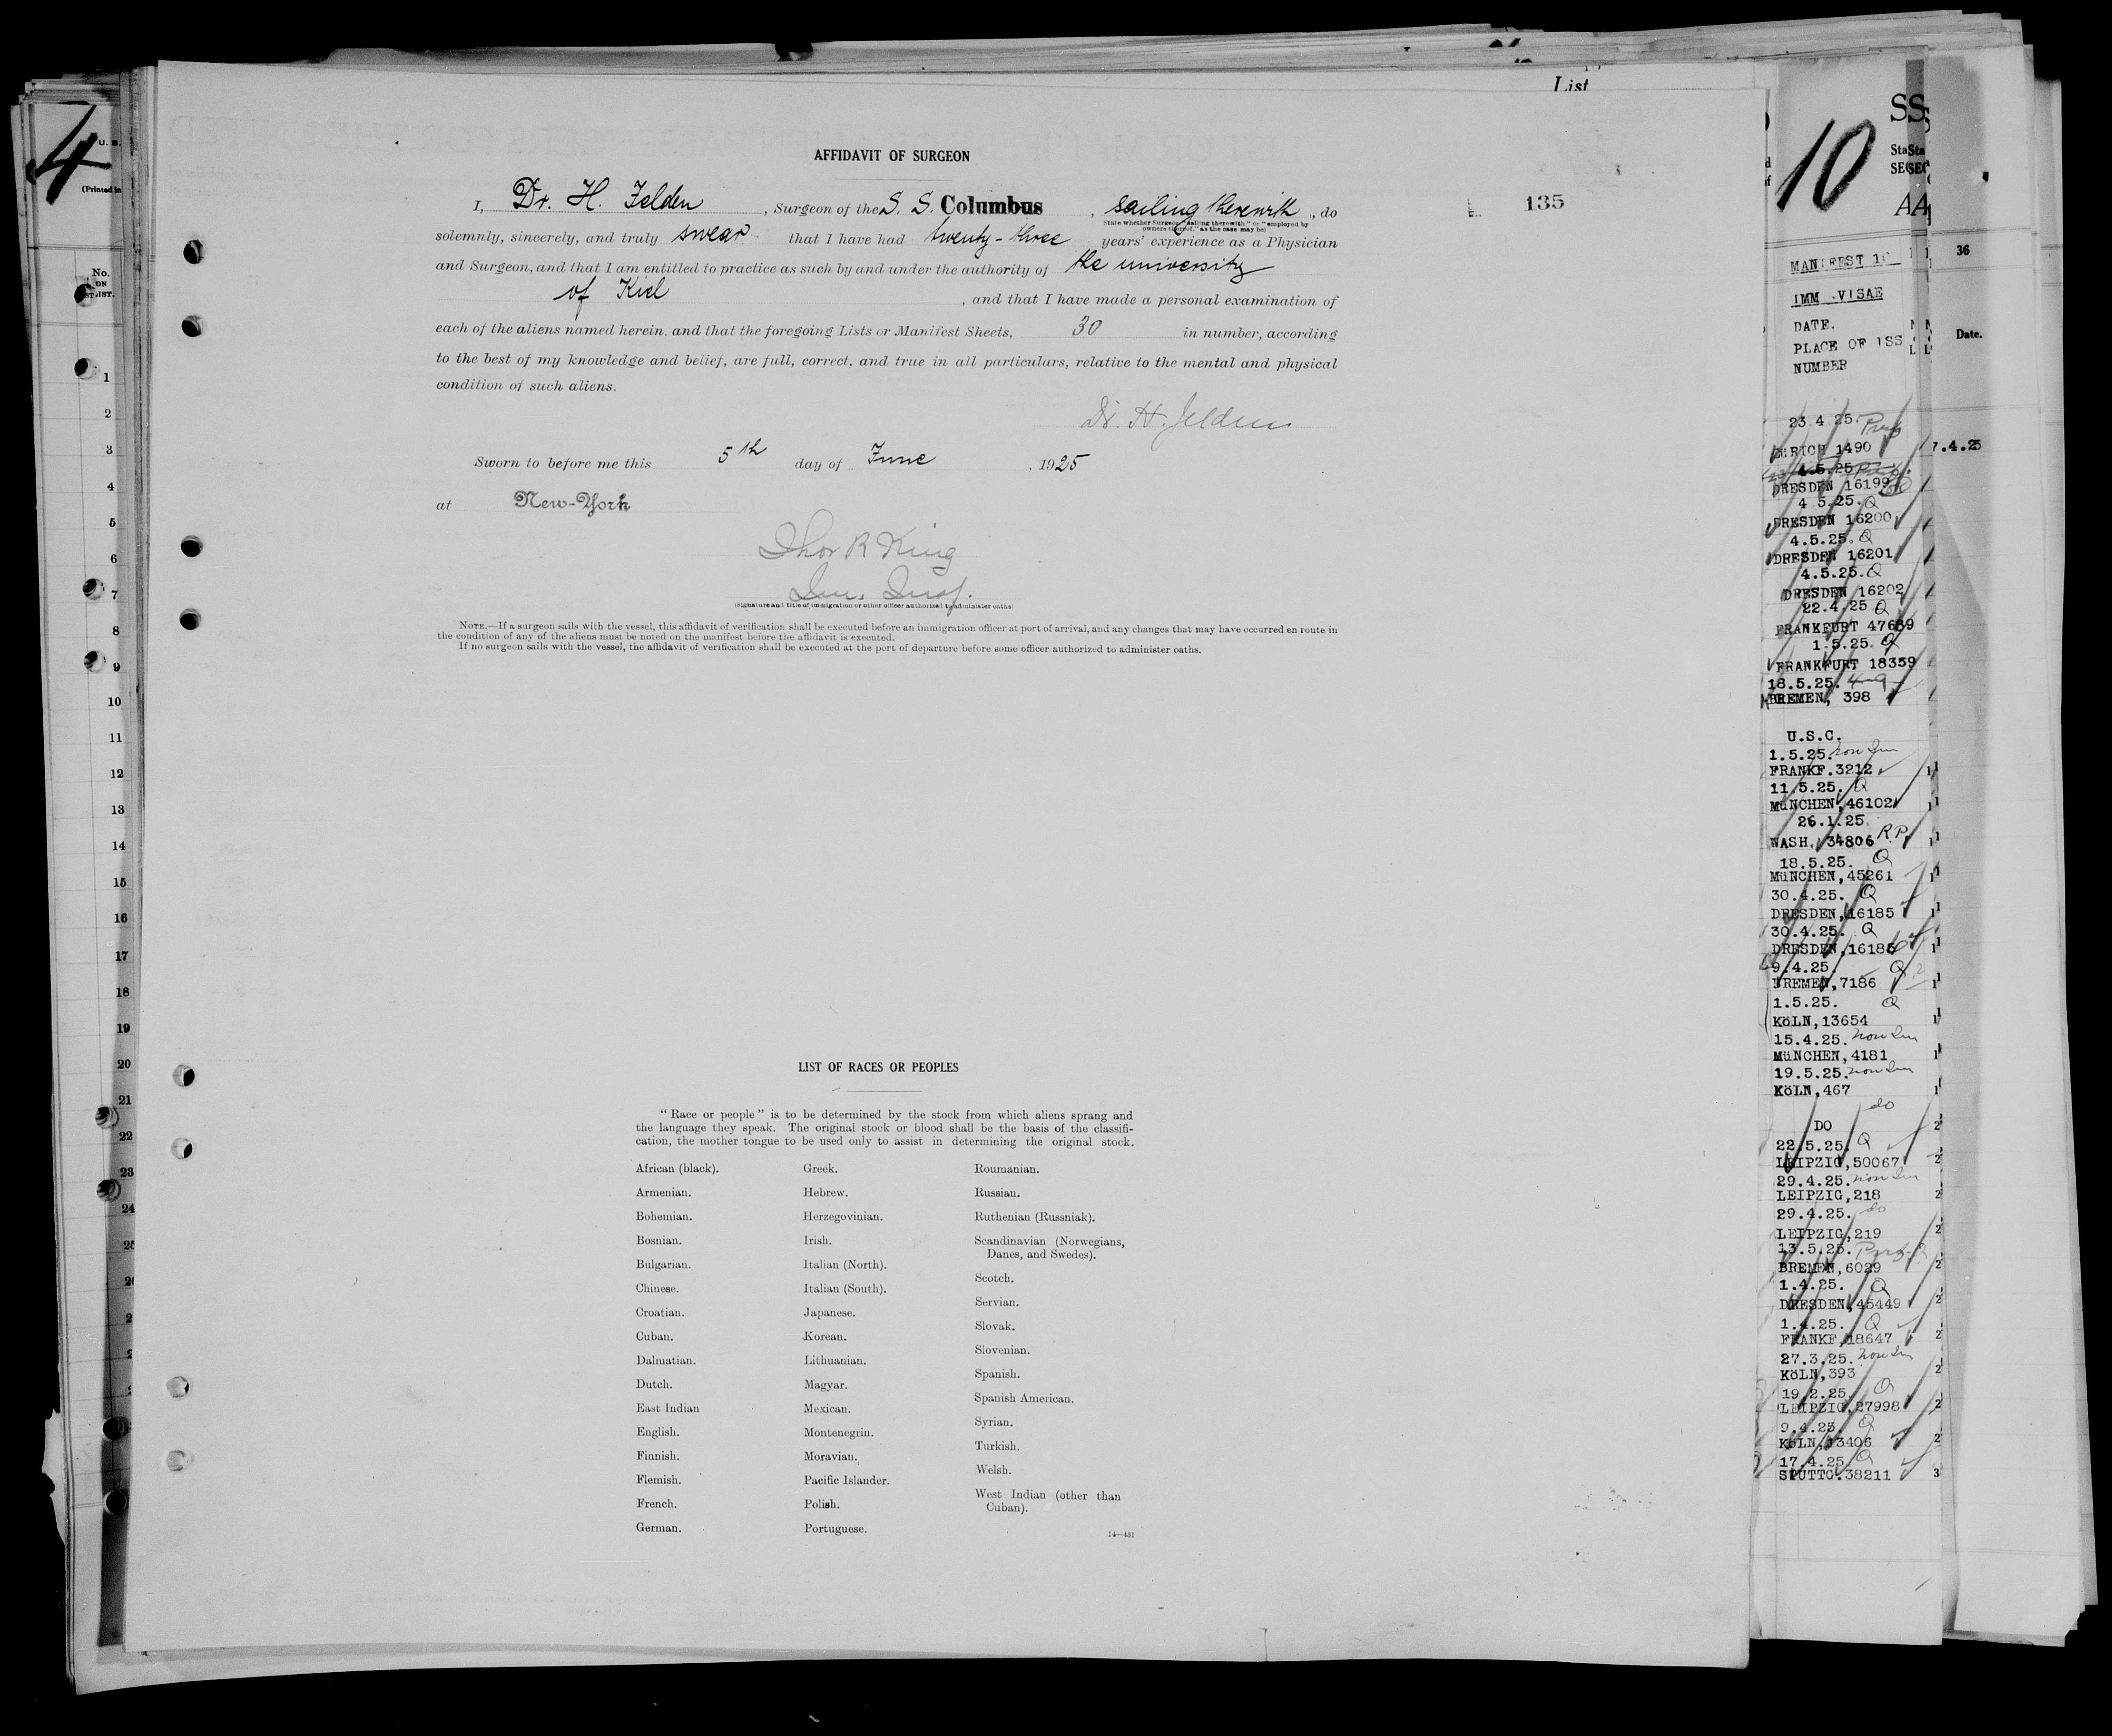 List
AFFIDAVIT OF SURGEON
135
I, Dr. H. Jelden, Surgeon of the S. S. Columbus, sailing therewith, do
State whether Surgeon "sailing therewith" or "employed by
owners thereof," as the case may be)
solemnly, sincerely, and truly swear that I have had twenty-three years' experience as a Physician
and Surgeon, and that I am entitled to practice as such by and under the authority of the university
of Kiel, and that I have made a personal examination of
each of the aliens named herein, and that the foregoing Lists or Manifest Sheets, 30 in number, according
to the best of my knowledge and belief, are full, correct, and true in all particulars, relative to the mental and physical
condition of such aliens.
Dr. H. Jelden
Sworn to before me this 5th day of June, 1925
at New-York
Thos R King
Imm. Insp.
(Signature and title of immigration or other officer authorized to administer oaths)
NOTE.—If a surgeon sails with the vessel, this affidavit of verification shall be executed before an immigration officer at port of arrival, and any changes that may have occurred en route in
the condition of any of the aliens must be noted on the manifest before the affidavit is executed.
If no surgeon sails with the vessel, the affidavit of verification shall be executed at the port of departure before some officer authorized to administer oaths.
LIST OF RACES OR PEOPLES
"Race or people" is to be determined by the stock from which aliens sprang and
the language they speak. The original stock or blood shall be the basis of the classifi-
cation, the mother tongue to be used only to assist in determining the original stock.
African (black).
Armenian.
Bohemian.
Bosnian.
Bulgarian.
Chinese.
Croatian.
Cuban.
Dalmatian.
Dutch.
East Indian
English.
Finnish.
Flemish.
French.
German.
Greek.
Hebrew.
Herzegovinian.
Irish.
Italian (North).
Italian (South).
Japanese.
Korean.
Lithuanian.
Magyar.
Mexican.
Montenegrin.
Moravian.
Pacific Islander.
Polish.
Portuguese.
Roumanian.
Russian.
Ruthenian (Russniak).
Scandinavian (Norwegians,
Danes, and Swedes).
Scotch.
Servian.
Slovak.
Slovenian.
Spanish.
Spanish American.
Syrian.
Turkish.
Welsh.
West Indian (other than
Cuban).
14—431
4
U. S.
(Printed in
No.
ON
LIST.
1
2
3
4
5
6
7
8
9
10
11
12
13
14
15
16
17
18
19
20
21
22
23
24
10
MANIFEST 10
IMM VISAE
DATE.
PLACE OF ISS
NUMBER
23 4 25.
ZURICH 1490
4.5.25
DRESDEN 16199
4 5.25. Q
DRESDEN 16200
4.5.25. Q
DRESDEN 16201
4.5.25. Q
DRESDEN 16202
22.4.25 Q
FRANKFURT 47689
1.5.25. Q
FRANKFURT 18359
18.5.25.
BREMEN, 398
U.S.C.
1.5.25. non Im
FRANKF.3212
11.5.25. Q
MüNCHEN,46102
26.1.25.
WASH. 34806 R.P.
18.5.25. Q
MüNCHEN,45261
30.4.25. Q
DRESDEN,16185
30.4.25. Q
DRESDEN,16186
9.4.25. Q
BREMEN,7186
1.5.25. Q
KöLN,13654
15.4.25. non Im
MüNCHEN,4181
19.5.25. non Im
KöLN,467
do
DO
22.5.25. Q
LEIPZIG,50067
29.4.25. non Im
LEIPZIG,218
29.4.25. do
LEIPZIG,219
13.5.25.
BREMEN,6029
1.4.25. Q
DRESDEN,45449
1.4.25. Q
FRANKF,18647
27.3.25. non Im
KöLN,393
19.2.25. Q
LEIPZIG,27998
9.4.25 Q
KöLN,13406
17.4.25 Q
STUTTG.38211
36
Date.
7.4.25